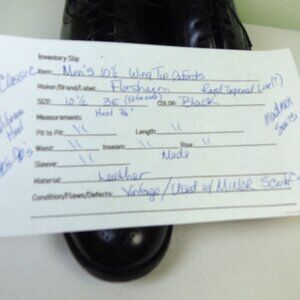 Inventory Slip
Classic
Item: Men's 10½ Wing Tip Oxfords
Maker/Brand/Label: Florsheim Royal Imperial Line (?)
SIZE: 10½ 3E COLOR: Black
Heel
Measurements
Pit to Pit: " Length: "
Waist: " Inseam: " Rise: "
Sleeve: " Made
Material: Leather
Condition/Flaws/Defects: Vintage/Used w/ Minor
Heel
Madmen